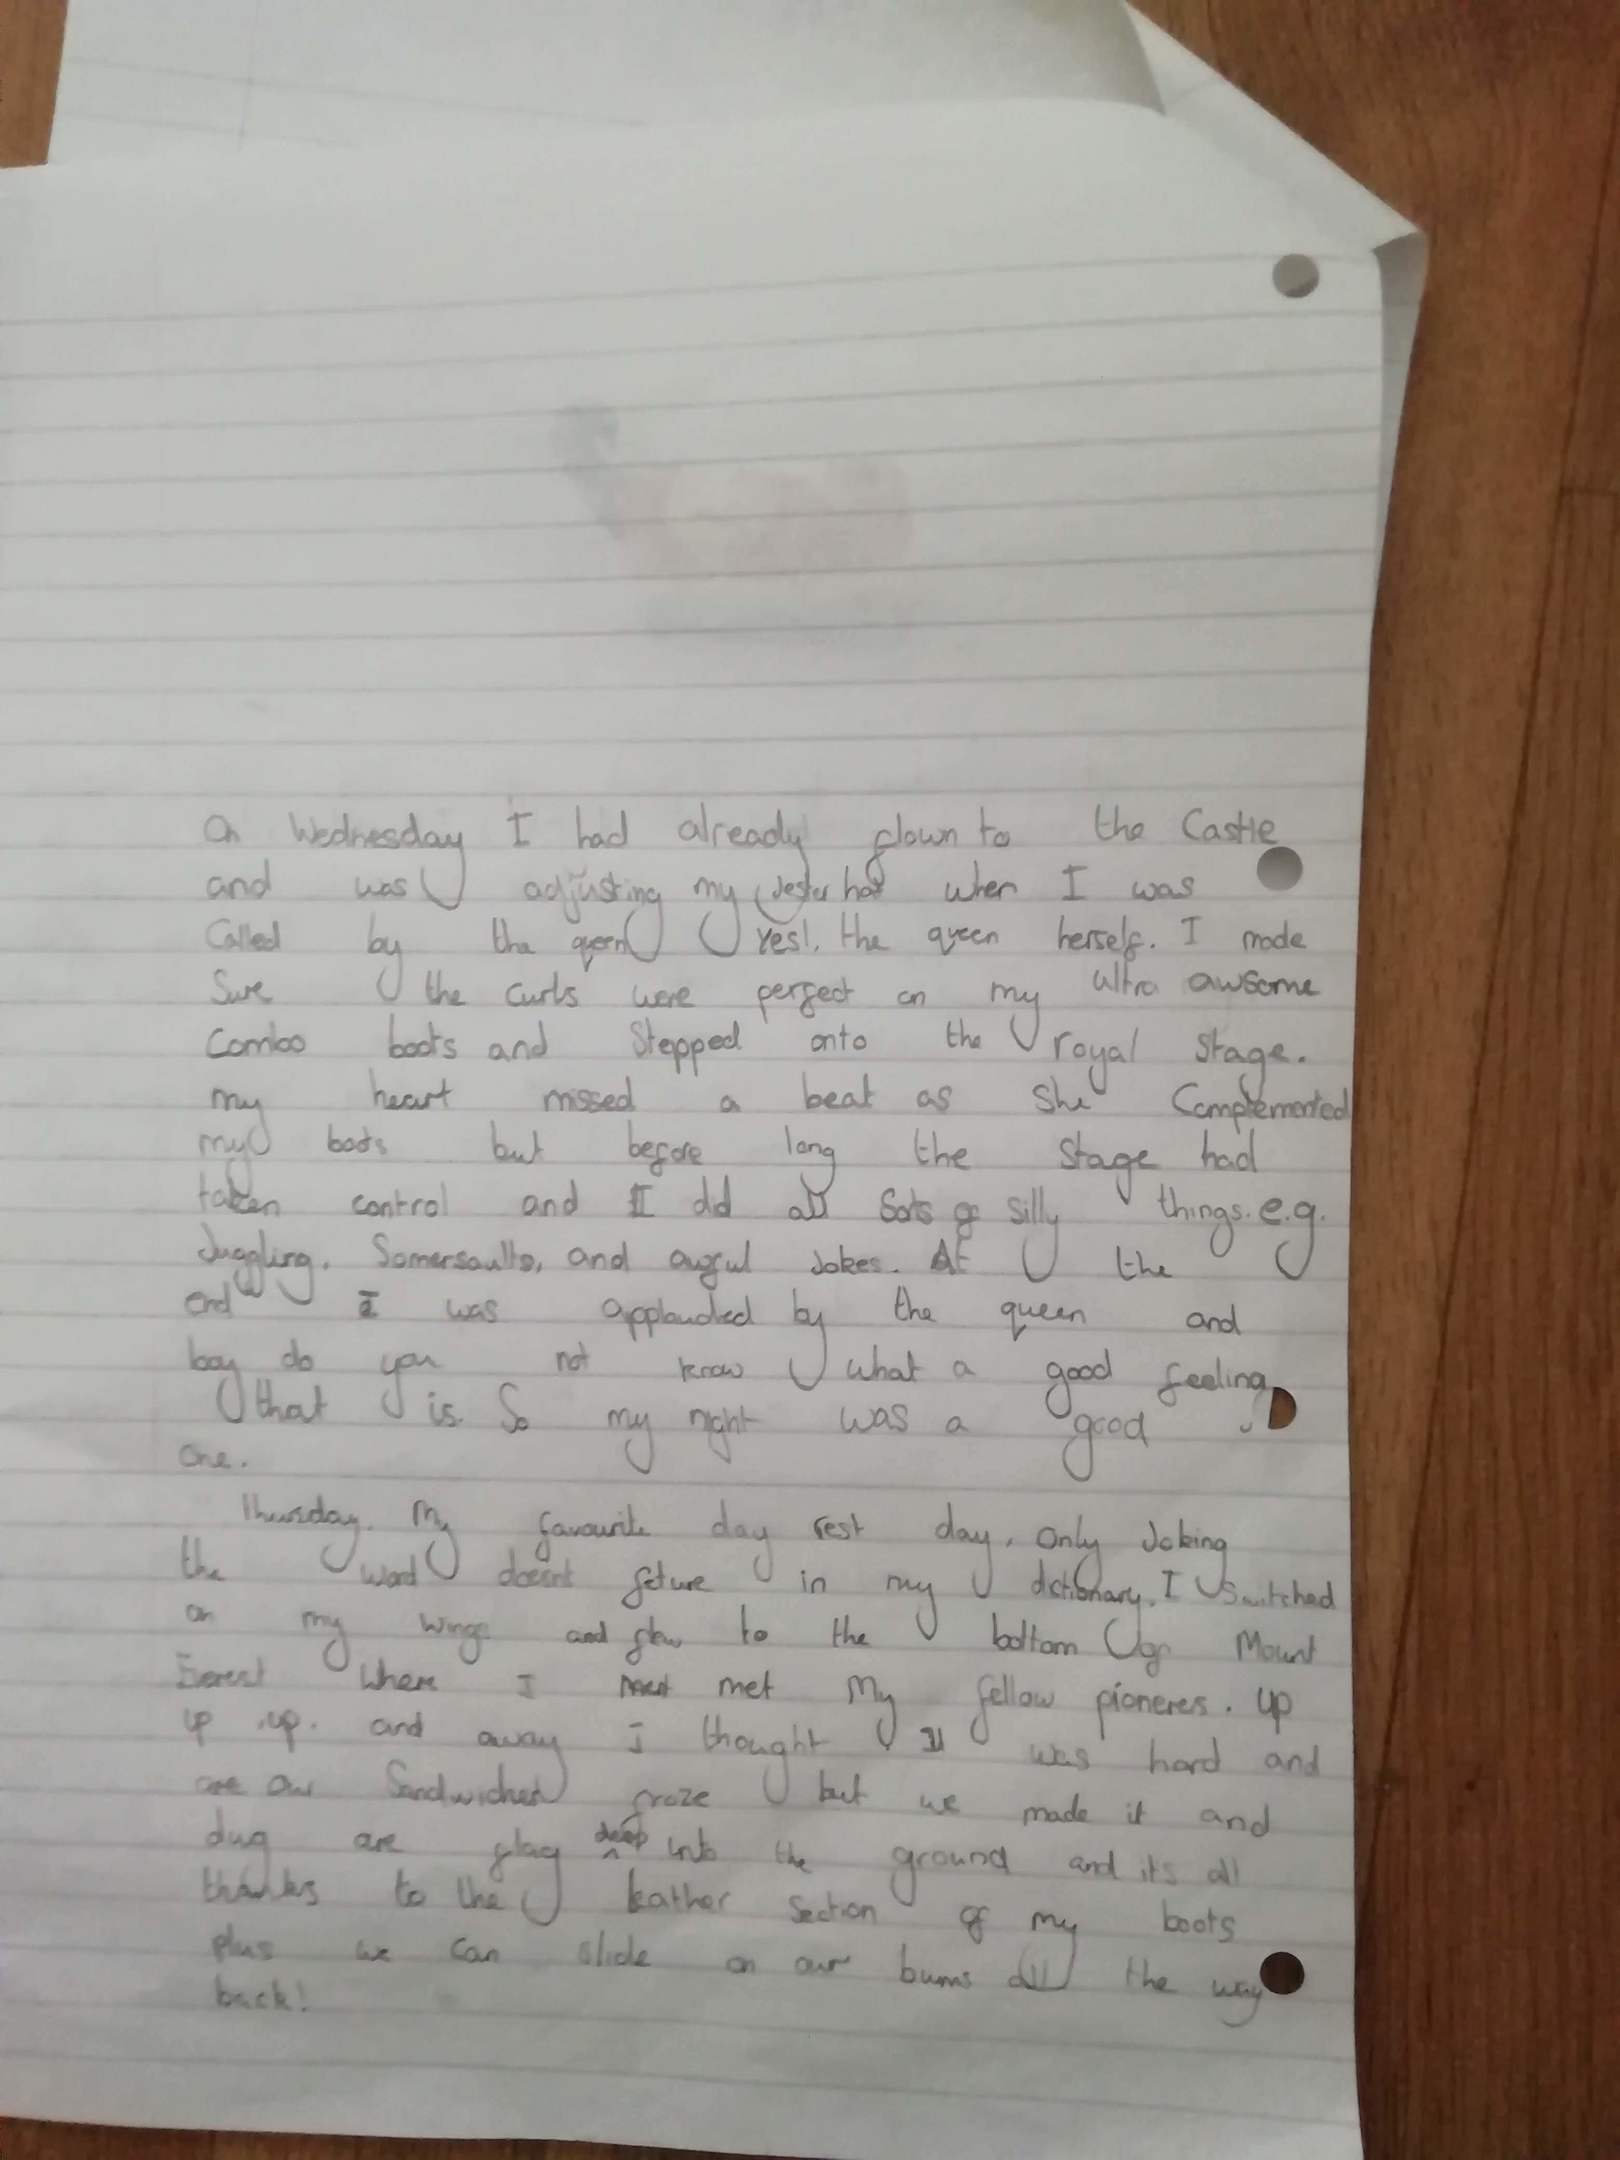 On Wednesday I had already flown to the Castle
and was adjusting my Jester hat when I was
Called by the queen Yes!. the queen herself. I made
Sure the curls were perfect on my ultra awsome
Combo boots and Stepped onto the royal Stage.
my heart missed a beat as She Complemented
my boots but before long the Stage had
taken control and I did all Sorts of silly things. e.g.
Juggling, Somersaults, and awful Jokes. At the
end I was applauded by the queen and
boy do you not know what a good feeling
that is. So my night was a good
one.
Thursday. My favourite day rest day. Only Joking
the word doesnt feture in my dictionary. I Switched
on my wings and flew to the bottom of Mount
Everest where I met my fellow pioneres. up
up .up. and away I thought It was hard and
our Sandwiches froze but we made it and
dug are flag deep into the ground and its all
thanks to the leather section of my boots
plus we can slide on our bums all the way
back!